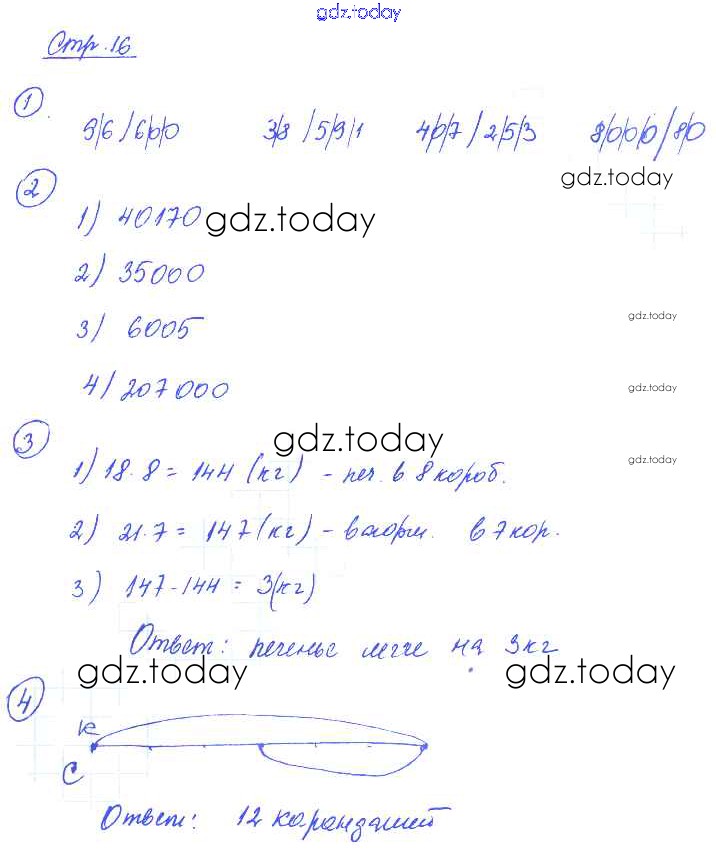 gdz.today
Стр. 16
1.
9/6/6/0/0 3/8/5/9/1 4/0/7/2/5/3 8/0/0/0/8/0
gdz.today
2
1) 40170 gdz.today
2) 35000
3) 6005 gdz.today
4) 207000 gdz.today
3 gdz.today
1) 18·8 = 144 (кг) - печ. в 8 короб. gdz.today
2) 21·7 = 147 (кг) - в 7 кор.
3) 147-144 = 3(кг)
Ответ: печенье легче на 3 кг
gdz.today gdz.today
4
К
С
Ответ: 12 карандашей